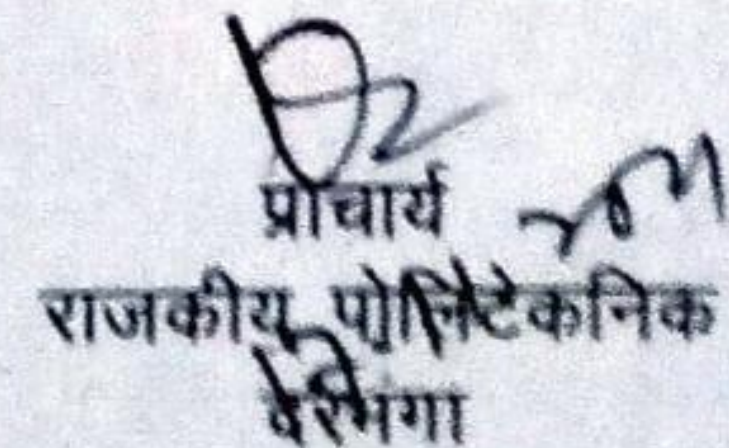 प्राचार्य
राजकीय पोलिटेकनिक
दरभंगा